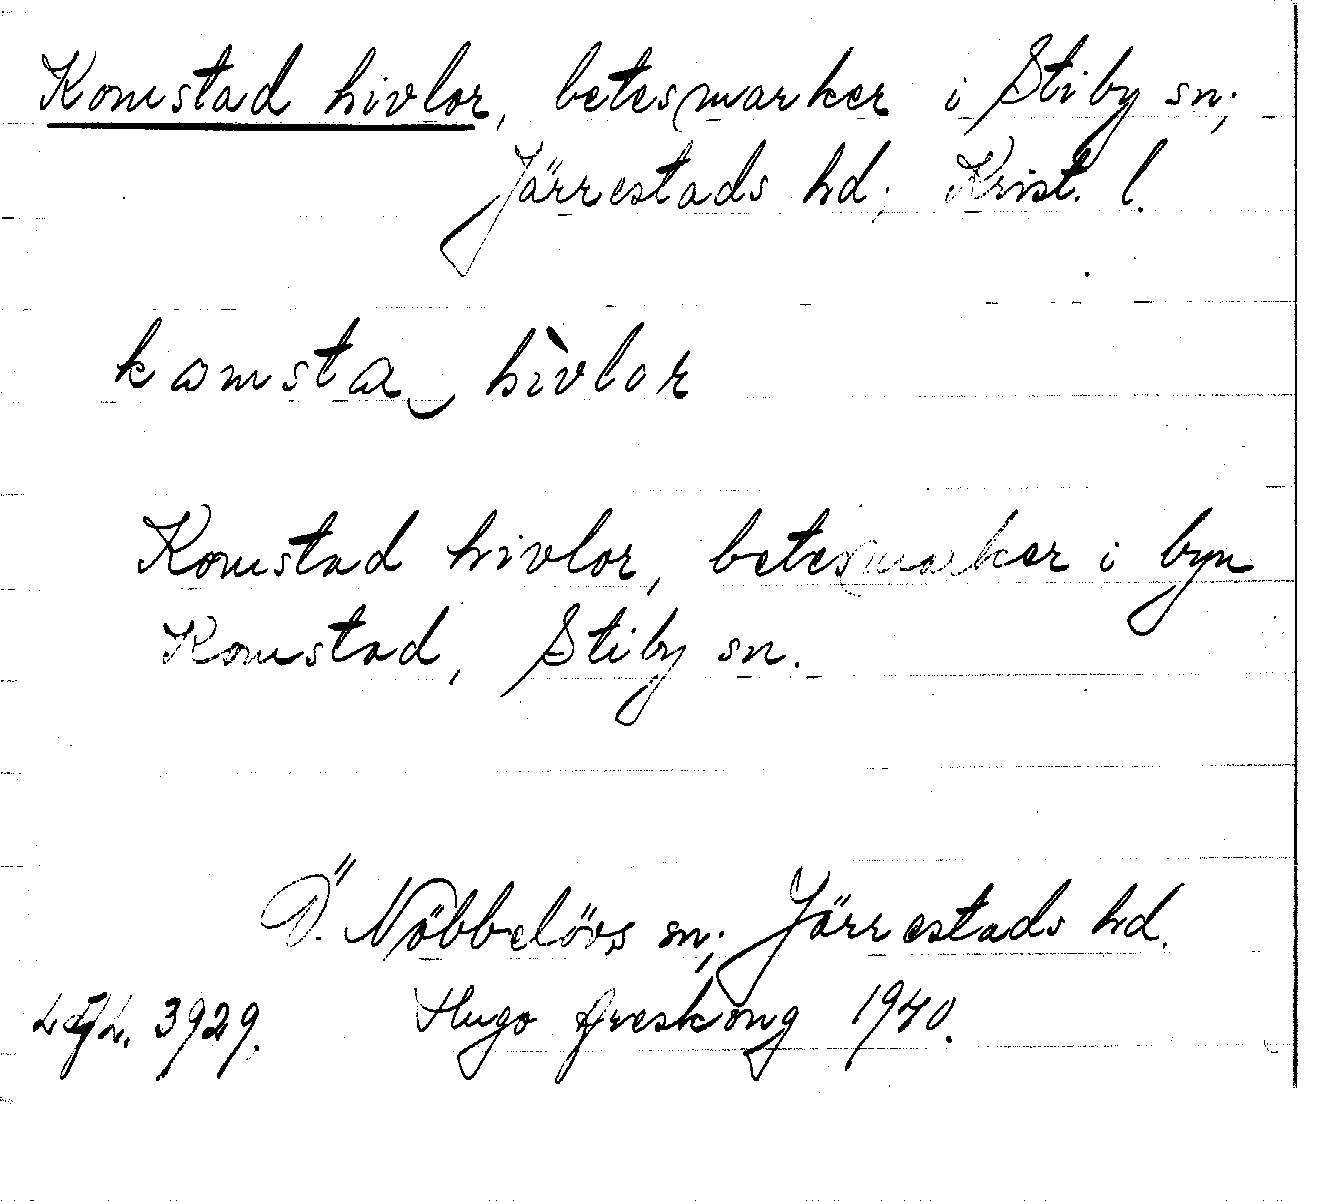 Komstad hivlor, betesmarker i Stiby sn;
Järrestads hd; Krist. l.
komsta‿hìvlor
Komstad hivlor, betesmarker i byn
Komstad, Stiby sn.
Ö. Nöbbelövs sn; Järrestads hd.
3929. Hugo Areskoug 1940.